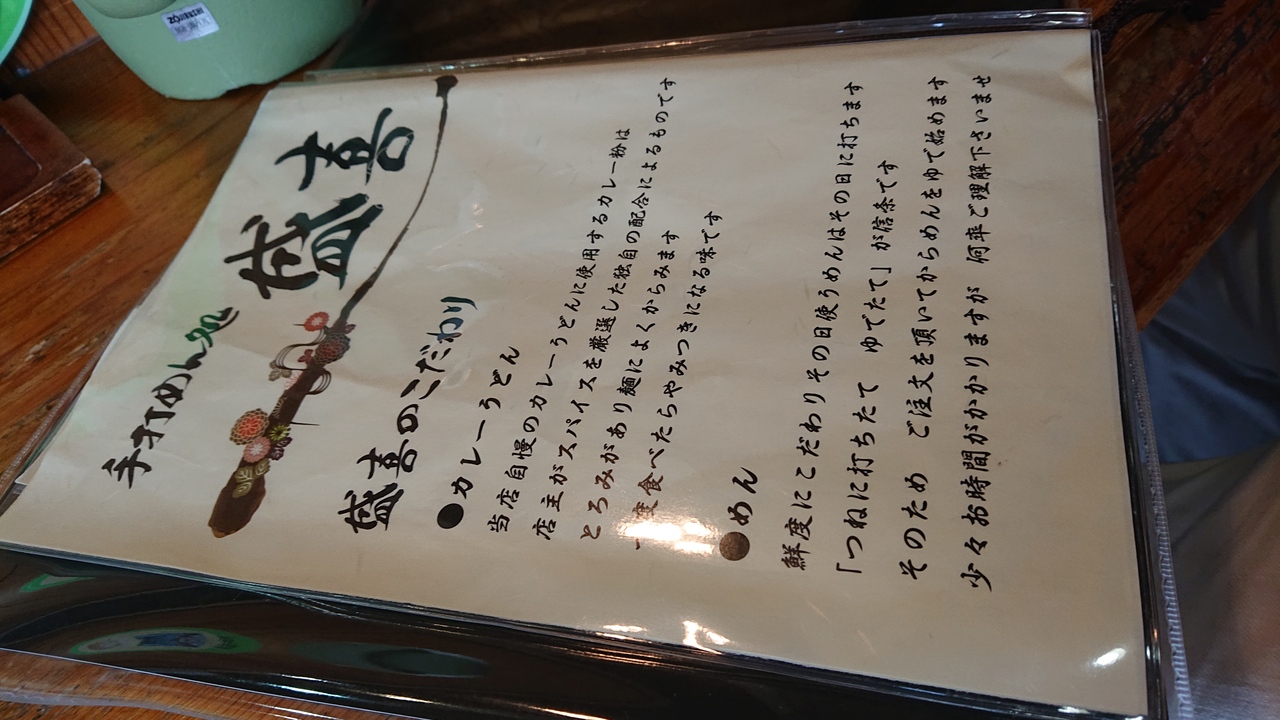 ZOJIRUSHI
手打めん処
盛喜
盛喜のこだわり
●カレーうどん
当店自慢のカレーうどんに使用するカレー粉は
店主がスパイスを厳選した独自の配合によるものです
とろみがあり麺によくからみます
一度食べたらやみつきになる味です
●めん
鮮度にこだわりその日使うめんはその日に打ちます
「つねに打ちたて ゆでたて」が信条です
そのため ご注文を頂いてからめんをゆで始めます
少々お時間がかかりますが 何卒ご理解下さいませ